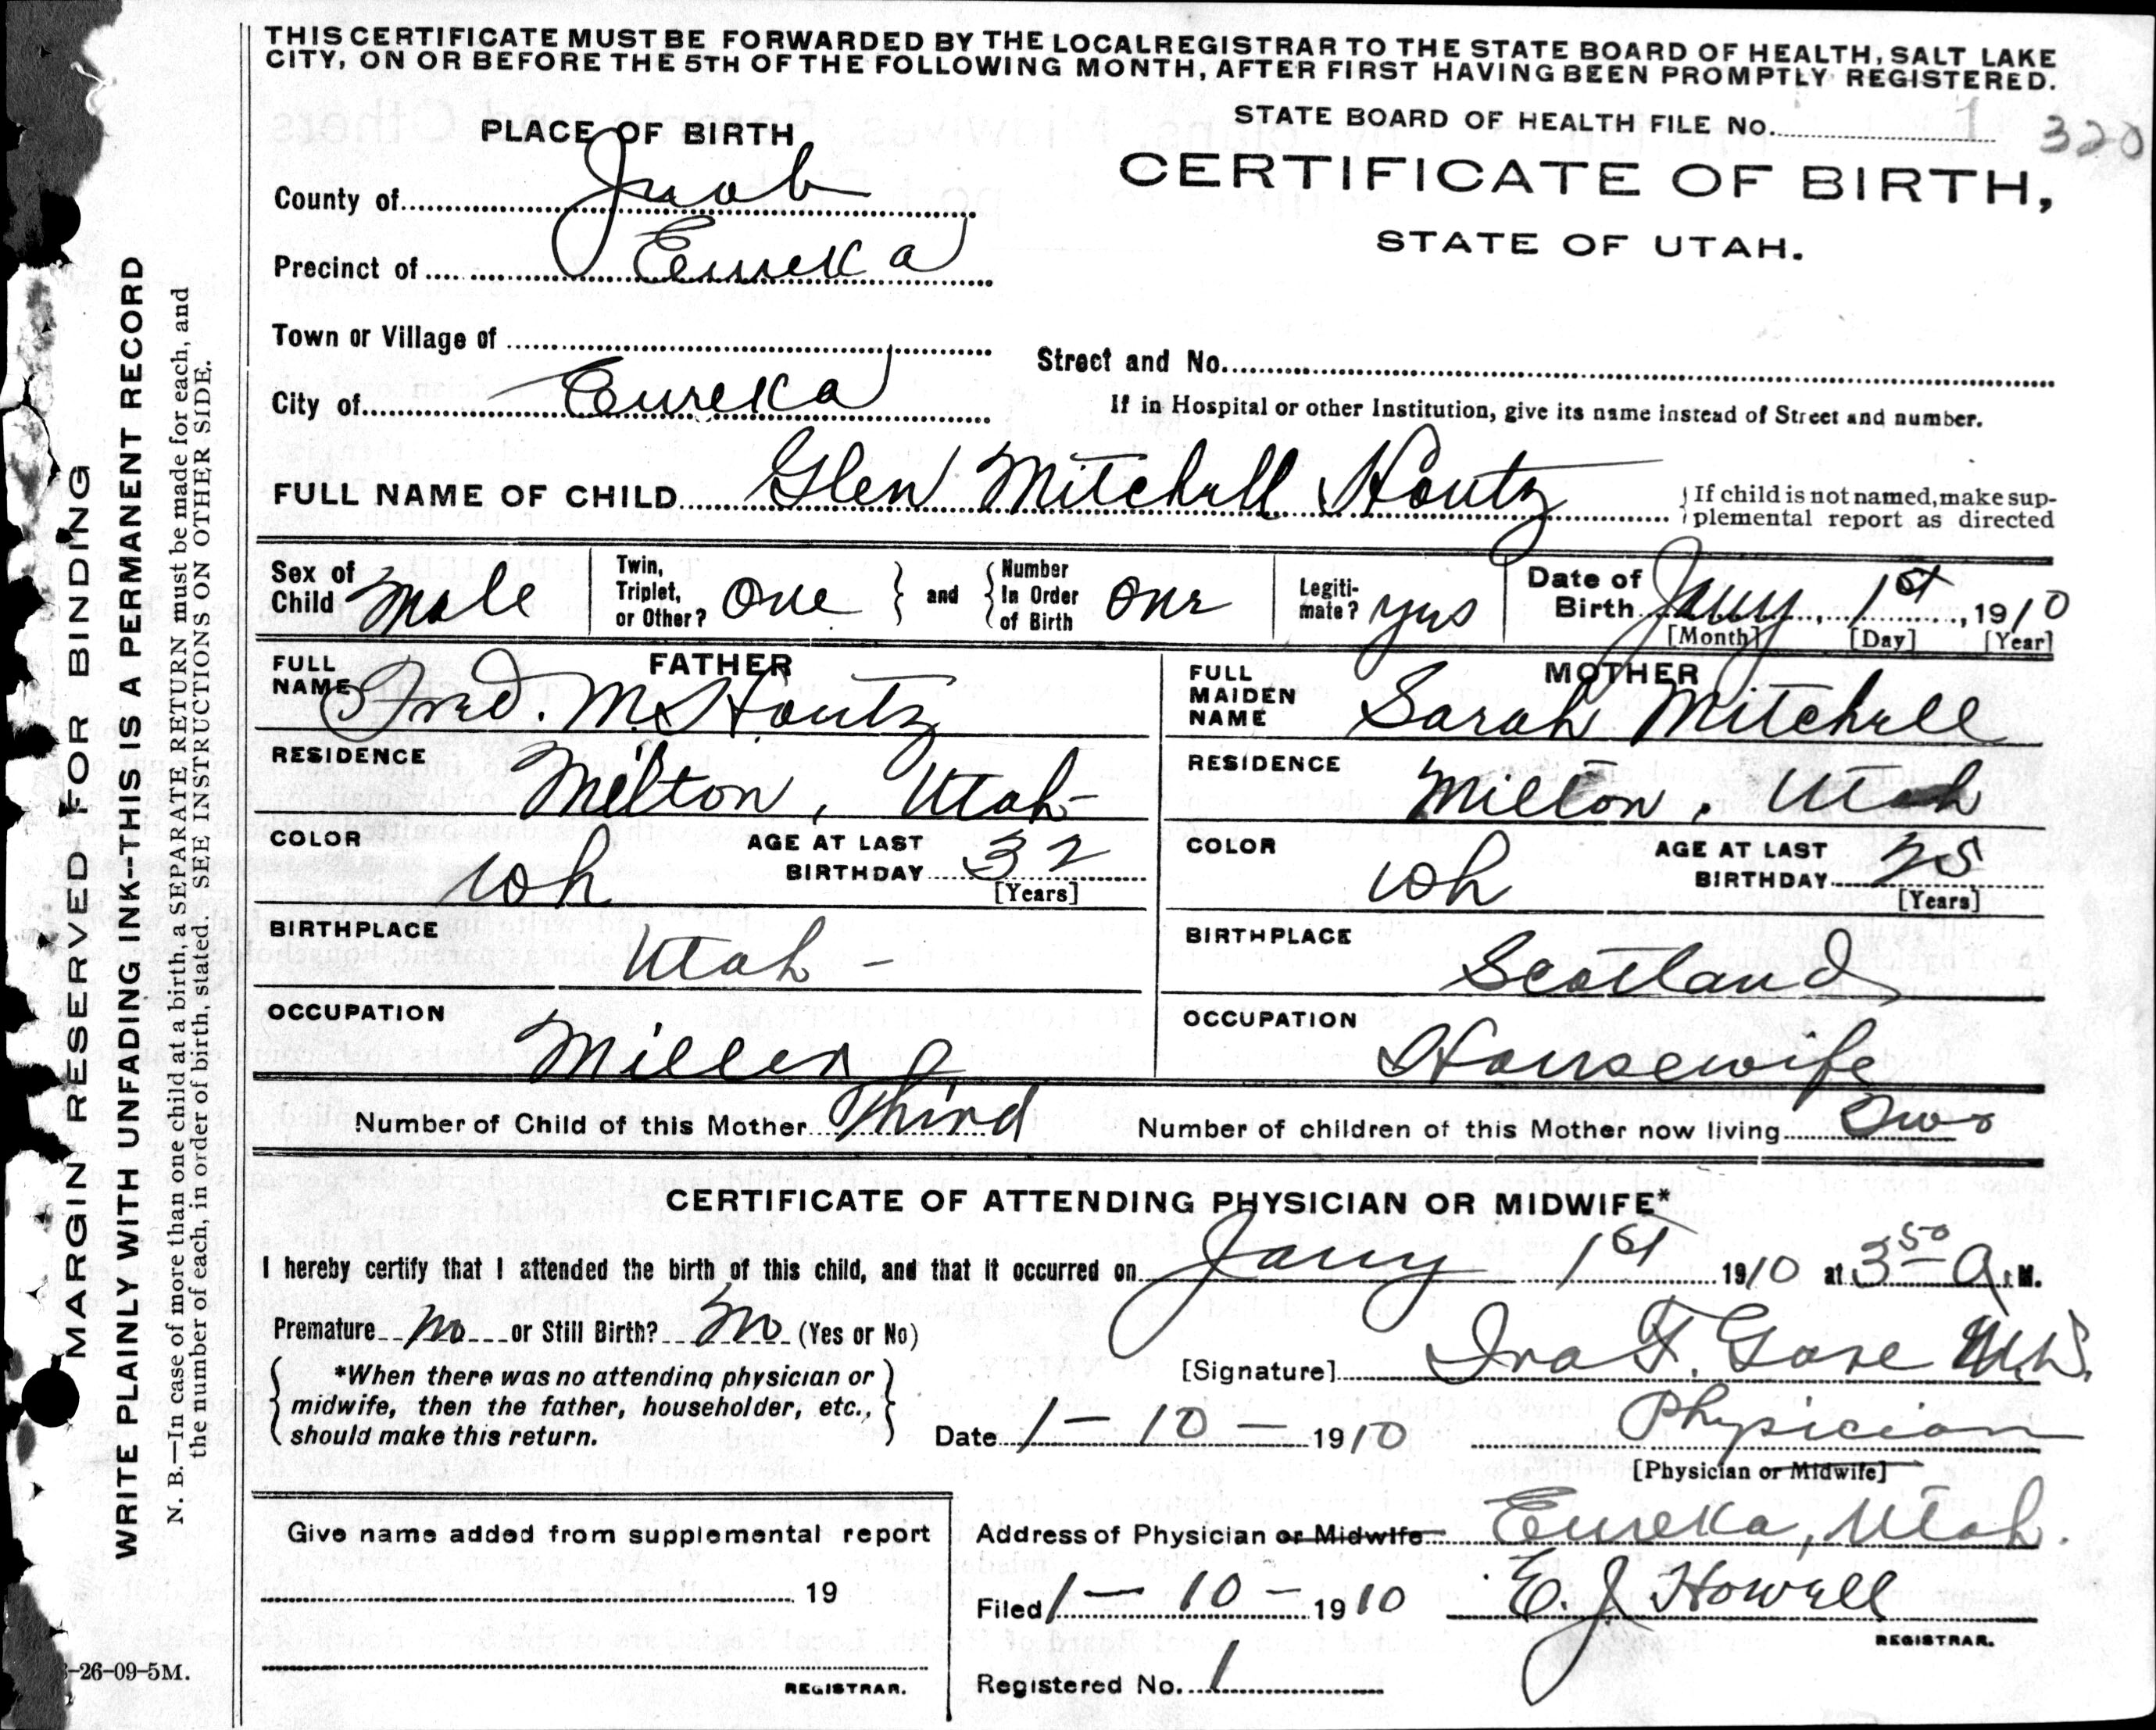 THIS CERTIFICATE MUST BE FORWARDED BY THE LOCAL REGISTRAR TO THE STATE BOARD OF HEALTH, SALT LAKE
CITY, ON OR BEFORE THE 5TH OF THE FOLLOWING MONTH, AFTER FIRST HAVING BEEN PROMPTLY REGISTERED.
STATE BOARD OF HEALTH FILE No. 1 320
PLACE OF BIRTH
CERTIFICATE OF BIRTH,
STATE OF UTAH.
County of Juab
Precinct of Eureka
Town or Village of
Street and No.
City of Eureka
If in Hospital or other Institution, give its name instead of Street and number.
FULL NAME OF CHILD Glen Mitchell Houtz
If child is not named, make sup-
plemental report as directed
Sex of
Child male
Twin,
Triplet,
or Other? One
and
Number
In Order
of Birth One
Legiti-
mate? yes
Date of
Birth Jany 1st, 1910
[Month] [Day] [Year]
FATHER
FULL
NAME Fred. M. Houtz
RESIDENCE
Milton, Utah-
COLOR
Wh
AGE AT LAST
BIRTHDAY 32
[Years]
BIRTHPLACE
Utah -
OCCUPATION
Miller
MOTHER
FULL
MAIDEN
NAME Sarah Mitchell
RESIDENCE
Milton, Utah
COLOR
Wh
AGE AT LAST
BIRTHDAY 25
[Years]
BIRTHPLACE
Scotland
OCCUPATION
Housewife
Number of Child of this Mother Third
Number of children of this Mother now living Two
CERTIFICATE OF ATTENDING PHYSICIAN OR MIDWIFE*
I hereby certify that I attended the birth of this child, and that it occurred on Jany 1st 1910 at 3 50 A. M.
Premature no or Still Birth? no (Yes or No)
*When there was no attending physician or
midwife, then the father, householder, etc.,
should make this return.
[Signature] Ira F. Gose M.D.
Date 1 - 10 - 1910
Physician
[Physician or Midwife]
Address of Physician or Midwife Eureka, Utah.
Filed 1 - 10 - 1910
E. J. Howell
REGISTRAR.
Registered No. 1
Give name added from supplemental report
19
REGISTRAR.
MARGIN RESERVED FOR BINDING
WRITE PLAINLY WITH UNFADING INK--THIS IS A PERMANENT RECORD
N. B.—In case of more than one child at a birth, a SEPARATE RETURN must be made for each, and
the number of each, in order of birth, stated. SEE INSTRUCTIONS ON OTHER SIDE.
-26-09-5M.